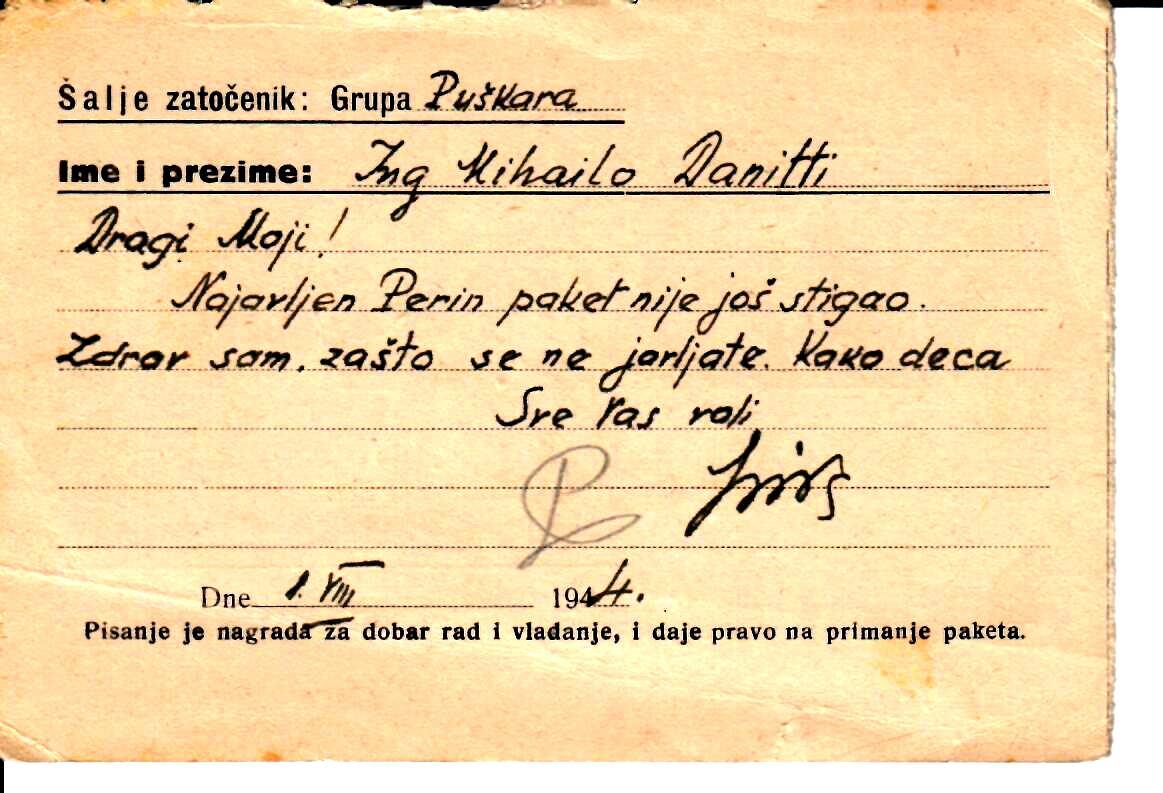 Šalje zatočenik: Grupa Puškara
Ime i prezime: Ing Mihailo Danitti
Dragi Moji!
Najavljen Perin paket nije još stigao.
Zdrav sam. zašto se ne javljate. Kako deca
Sve Vas voli
Dne 1. VIII 1944.
Pisanje je nagrada za dobar rad i vladanje, i daje pravo na primanje paketa.